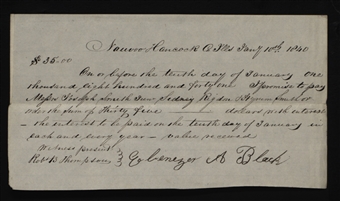 Nauvoo Hancock Co Ills Jany 10th 1840
$35.00
On or before the tenth day of January one
thousand, eight hundred and forty one I promise to pay
Joseph Smith Sidney Rigdon Hyrum Smith or
order the Sum of Thirty five dollars with interest
the interest to be paid on the tenth day of January in
each and every year — value received
Witness present
Robt B Thompson } Ebenezer A Black